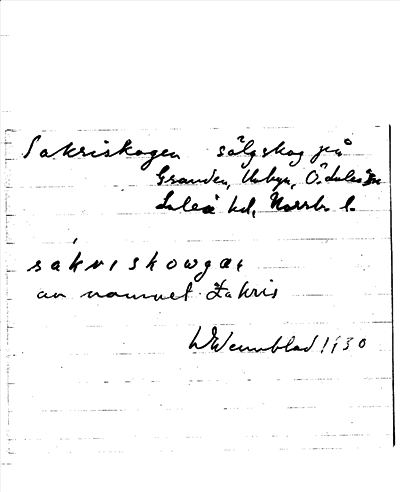 Sakriskogen sälgskog på
Granden, Unbyn, Ö. Luleå sn
Luleå hd, Norrb. l.
sákriskowgæt
av namnet Zakris
Wennblad 1930